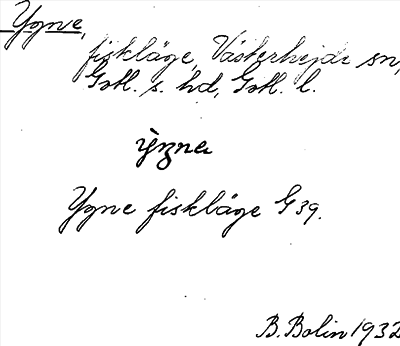 Ygne,
fiskläge, Västerhejde sn,
Gotl. s. hd, Gotl. l.
ỳŋna
Ygne fiskläge G 39.
B. Bolin 1932